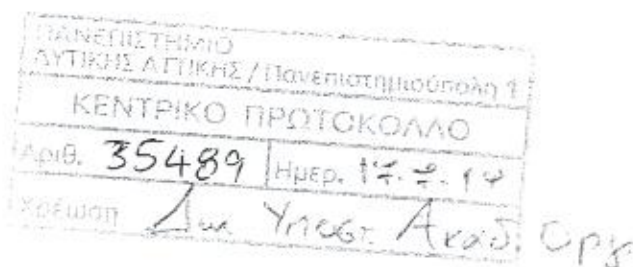 ΠΑΝΕΠΙΣΤΗΜΙΟ
ΔΥΤΙΚΗΣ ΑΤΤΙΚΗΣ / Πανεπιστημιούπολη 1
ΚΕΝΤΡΙΚΟ ΠΡΩΤΟΚΟΛΛΟ
Αριθ. 35489 Ημερ.
Χρέωση Ακαδ.